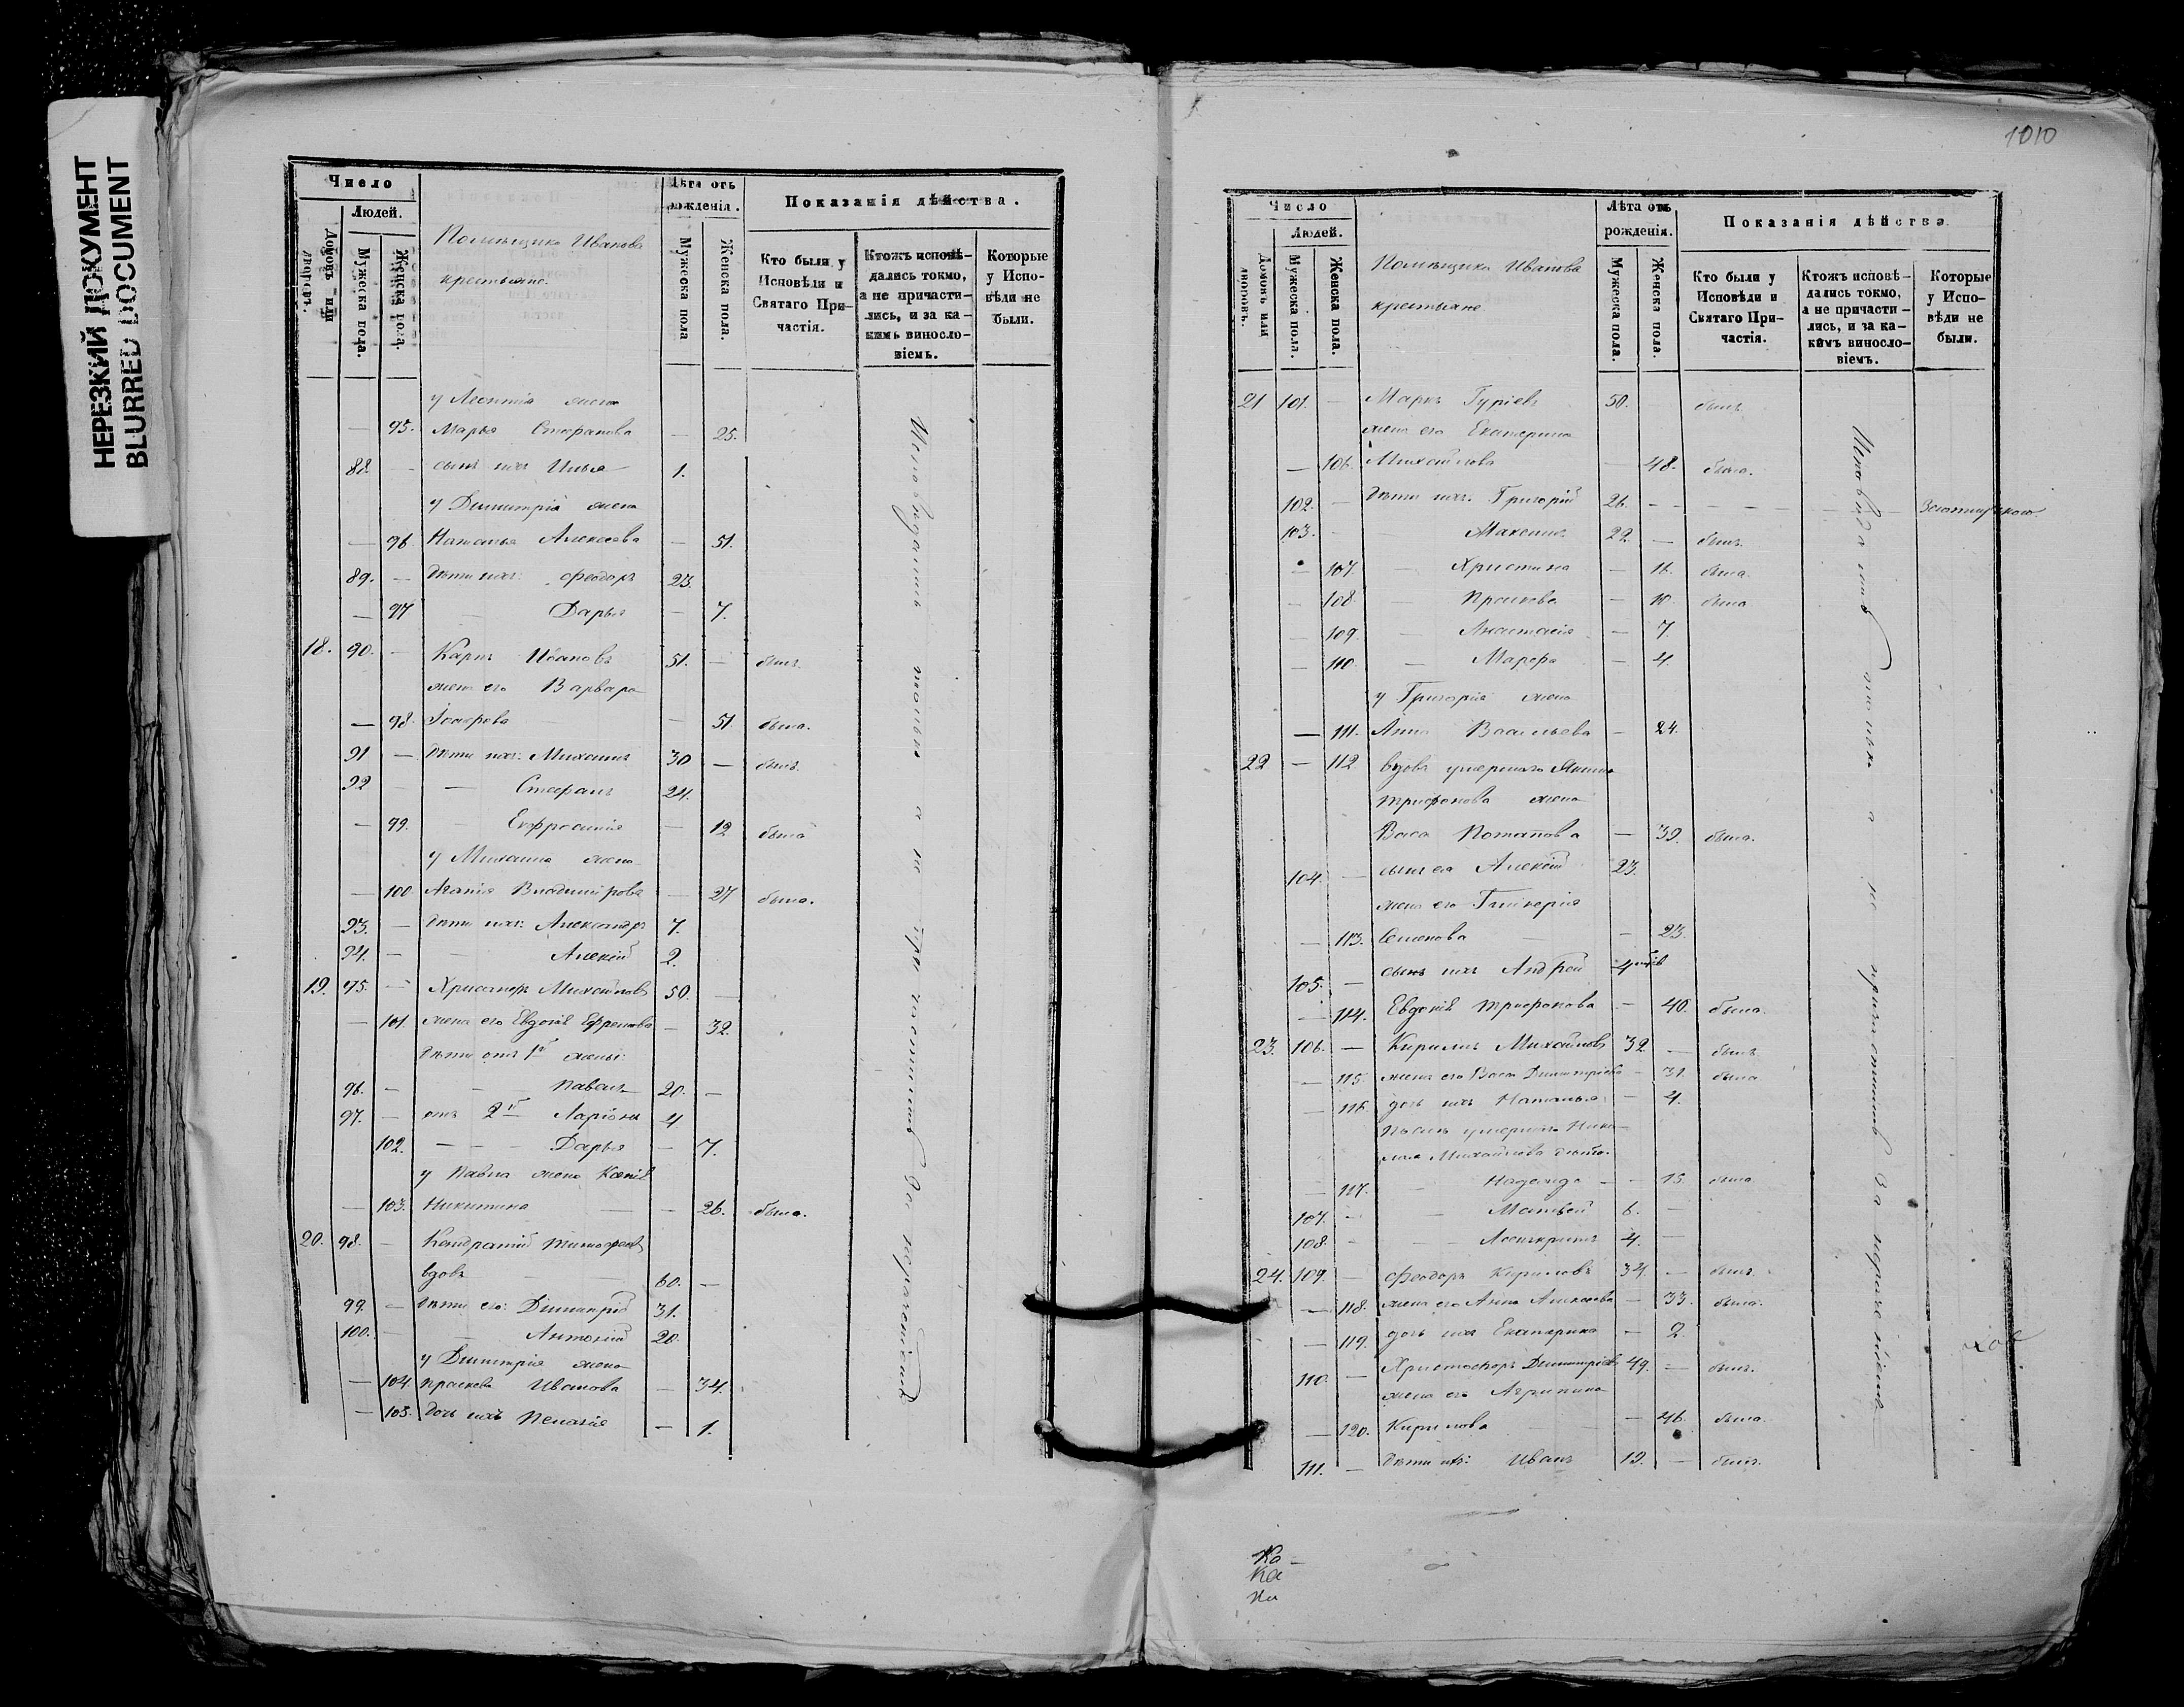 НЕРЕЗКИЙ ДОКУМЕНТ
BLURRED DOCUMENT
Число
Людей.
Домовъ или дворовъ.
Мужеска пола.
Женска пола.
Помѣщика Иванова
крестьяне.
Лѣта отъ рожденія.
Мужеска пола
Женска пола.
Показанія дѣйства.
Кто были у Исповѣди и Святаго При-частія.
Ктожъ исповѣ-дались токмо, а не причасти-лись, и за ка-кимъ виносло-віемъ.
Которые у Испо-вѣди не были.
у Леонтія жена
— 95. Марья Стефанова — 25.
88. — сынъ ихъ Илья 1.
у Димитрія жена
— 96. Наталья Алексѣева — 51.
89. — дѣти ихъ: Феодоръ 23.
— 97 — Дарья — 7.
18. 90. — Карпъ Ивановъ 51. — былъ.
жена его Варвара
— 98. — 51. была.
91 — дѣти ихъ: Михаилъ 30 — былъ.
92 — — Стефанъ 24.
— 99. — Евфросинія — 12 была
у Михаила жена
— 100. Агапія Владимірова — 27 была.
93. — дѣти ихъ: Александръ 7.
94. — — Алексій 2.
19. 95. — Михайловъ 50. —
— 101. жена его Евдокія Ефремова — 32.
дѣти отъ 1й жены:
96. — — Павелъ 20. —
97. — отъ 2й Ларіонъ 4
102. — — — Дарья — 7.
у Павла жена Ксенія
— 103. Никитина — — 26. была.
20. 98. — Кондратій Тимофеевъ
вдовъ — — 60. —
99. — дѣти его: Димитрій 31.
100. — — Антоній 20.
у Димитрія жена
— 104. Прасковья Иванова — 34.
— 105. дочь ихъ Пелагія — 1.
Исповѣдались только а не причастились за нерачениемъ
1010
Число
Людей.
Домовъ или дворовъ.
Мужеска пола.
Женска пола.
Помѣщика Иванова
крестьяне
Лѣта отъ рожденія.
Мужеска пола.
Женска пола.
Показанія дѣйства.
Кто были у Исповѣди и Святаго При-частія.
Ктожъ исповѣ-дались токмо, а не причасти-лись, и за ка-кимъ виносло-віемъ.
Которые у Испо-вѣди не были.
21 101. — Маркъ Гуріевъ 50. былъ
жена его Екатерина
— 106. Михайлова — 48. была.
102. — дѣти ихъ: Григорій 26. — — — —
103. — — Максимъ 22. — былъ.
— 107. — Христина — 16. была
— 108. — Прасковья — 10. была
— 109. — Анастасія — 7.
— 110. — Марфа — 4.
у Григорія жена
— 111. Анна Васильева — 24.
22 — 112 вдова умершаго
Трифонова жена
Васса Потапова — 39. была.
104. — сынъ ея Алексій 23.
жена его Гликерія
— 113. Семенова — — 23.
105. — сынъ ихъ Андрей
— 114. Евдокія Трифонова — 40. была.
23. 106. — Кирилъ Михайловъ 32 — былъ
— 115. жена его Васса Димитріева — 31. была
— 116. дочь ихъ Наталья — 4.
послѣ умершаго Нико-
лая Михайлова дѣти:
— 117. — Надежда — — 15. была
107. — — Матвѣй 6. —
108. — — 4. —
24. 109. — Феодоръ Кириловъ 34. — былъ.
— 118. жена его Анна Алексѣева — 33. была.
— 119. дочь ихъ Екатерина — 2.
110. — Христофоръ Димитріевъ 49. — былъ.
жена его Агрипина
— 120. Кирилова — 46. была.
111. — дѣти ихъ: Иванъ 19. — былъ.
Исповѣдались только а не причастились за нерачениемъ
Ка —
Ка